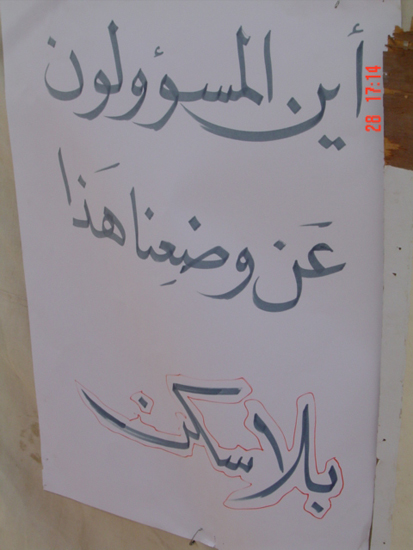 أين المسؤولون
عَن وضعِنا هَذا
بلا سكن
28 17:14